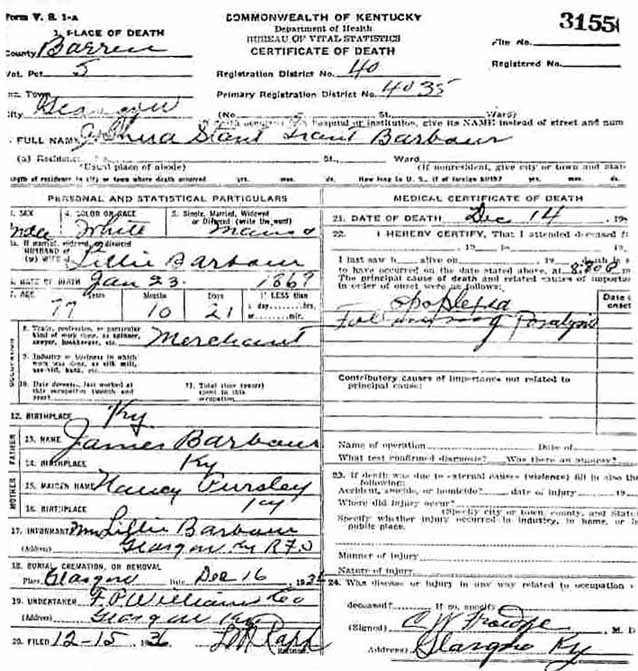 Form V. S. 1-A
COMMONWEALTH OF KENTUCKY
Department of Health
BUREAU OF VITAL STATISTICS
CERTIFICATE OF DEATH
3155
File No.
Registered No.
1. PLACE OF DEATH
County Barren
Vot. Pct 5
Registration District No. 40
Primary Registration District No. 4035
Inc. Town
City Glasgow
(No. St., Ward)
hospital or institution, give its NAME instead of street and num
FULL NAME Stant Grant Barbour
(a) Residence St., Ward
(Usual place of abode) (If nonresident, give city or town and state
Length of residence in city or town where death occurred yrs. mos. ds. How long in U. S., if of foreign birth? yrs. mos. ds.
PERSONAL AND STATISTICAL PARTICULARS
3. SEX 4. COLOR OR RACE 5. Single, Married, Widowed or Divorced (write the word)
Male White
5a. If married, widowed, or divorced
HUSBAND of
(or) WIFE of Lillie Barbour
6. DATE OF BIRTH Jan 23 1869
7. AGE Years Months Days If LESS than
77 10 21 1 day hrs. or min.
OCCUPATION
8. Trade, profession, or particular kind of work done, as spinner, sawyer, bookkeeper, etc. Merchant
9. Industry or business in which work was done, as silk mill, saw-mill, bank, etc.
10. Date deceased last worked at this occupation (month and year)
11. Total time (years) spent in this occupation
12. BIRTHPLACE Ky
FATHER
13. NAME James Barbour
14. BIRTHPLACE Ky
MOTHER
15. MAIDEN NAME Nancy Pursley
16. BIRTHPLACE Ky
17. INFORMANT Mrs Lillie Barbour
(Address) Glasgow Ky
18. BURIAL, CREMATION, OR REMOVAL
Place Glasgow Date Dec 16 193
19. UNDERTAKER F P Williams & Co
(Address) Glasgow Ky
20. FILED 12-15 36
MEDICAL CERTIFICATE OF DEATH
21. DATE OF DEATH Dec 14, 19
22. I HEREBY CERTIFY, That I attended deceased f
, 19 , to , 19
I last saw h alive on , 19 , death is s
to have occurred on the date stated above, at
The principal cause of death and related causes of importa
in order of onset were as follows:
Date o
onset
Apoplexia
Following Paralysis
Contributory causes of importance not related to
principal cause:
Name of operation Date of
What test confirmed diagnosis? Was there an autopsy?
23. If death was due to external causes (violence) fill in also the
following:
Accident, suicide, or homicide? date of injury , 19
Where did injury occur?
(Specify city or town, county, and State
Specify whether injury occurred in industry, in home, or in
public place.
Manner of injury
Nature of injury
24. Was disease or injury in any way related to occupation o
deceased? If so, specify
(Signed) M. D
Address Glasgow Ky